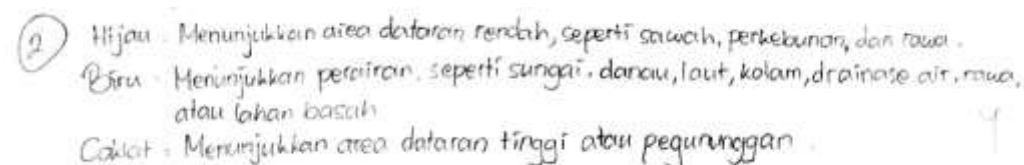 2 Hijau : Menunjukkan area dataran rendah, seperti sawah, perkebunan, dan rawa.
Biru : Menunjukkan perairan, seperti sungai, danau, laut, kolam, drainase air, rawa,
atau lahan basah
Coklat : Menunjukkan area dataran tinggi atau pegununggan.